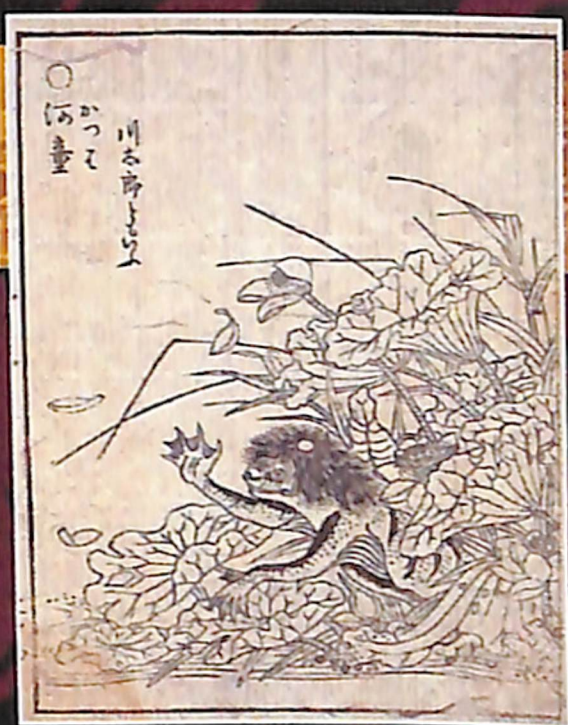 〇
河童
かつは
川太郎ともいふ